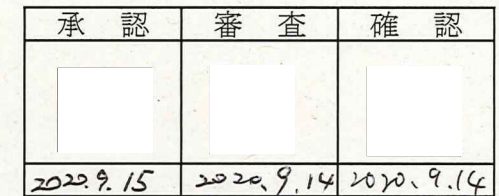 承認 審査 確認
2020.9.15 2020.9.14 2020.9.14